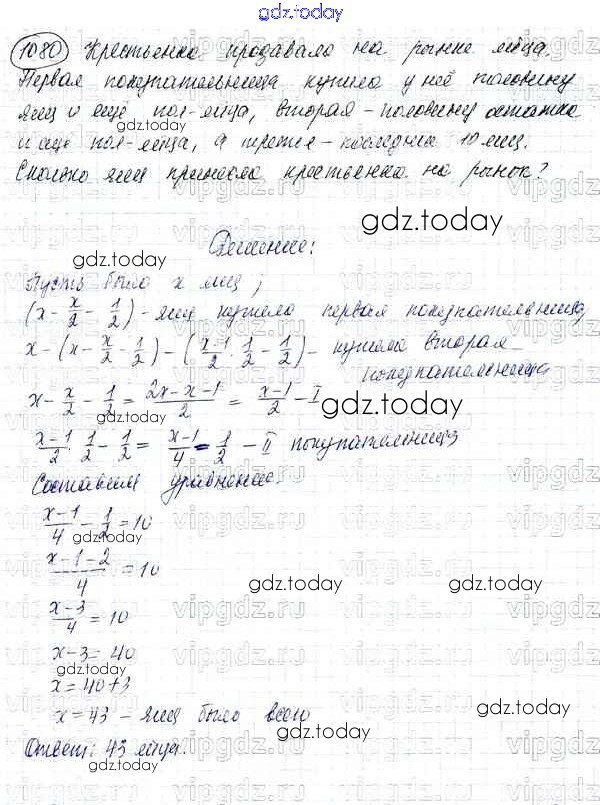 gdz.today
1080 Крестьянка продавала на рынке яйца.
Первая покупательница купила у неё половину
яиц и ещё пол-яйца, вторая – половину остатка
gdz.today
и ещё пол-яйца, а третья – последние 10 яиц.
Сколько яиц принесла крестьянка на рынок?
gdz.today
Решение:
gdz.today
Пусть было x яиц;
(x - x/2 - 1/2) - яиц купила первая покупательница,
x - (x - x/2 - 1/2) - (x-1/2 · 1/2 - 1/2) - купила вторая
покупательница
x - x/2 - 1/2 = 2x-x-1/2 = x-1/2 - I
gdz.today
x-1/2 · 1/2 - 1/2 = x-1/4 - 1/2 - II покупательница
Составим уравнение.
x-1/4 - 1/2 = 10
gdz.today
x-1-2/4 = 10
gdz.today
x-3/4 = 10
x-3 = 40
gdz.today
x = 40+3
x = 43 – яиц было всего
gdz.today
Ответ: 43 яйца.
gdz.today
vipgdz.ru